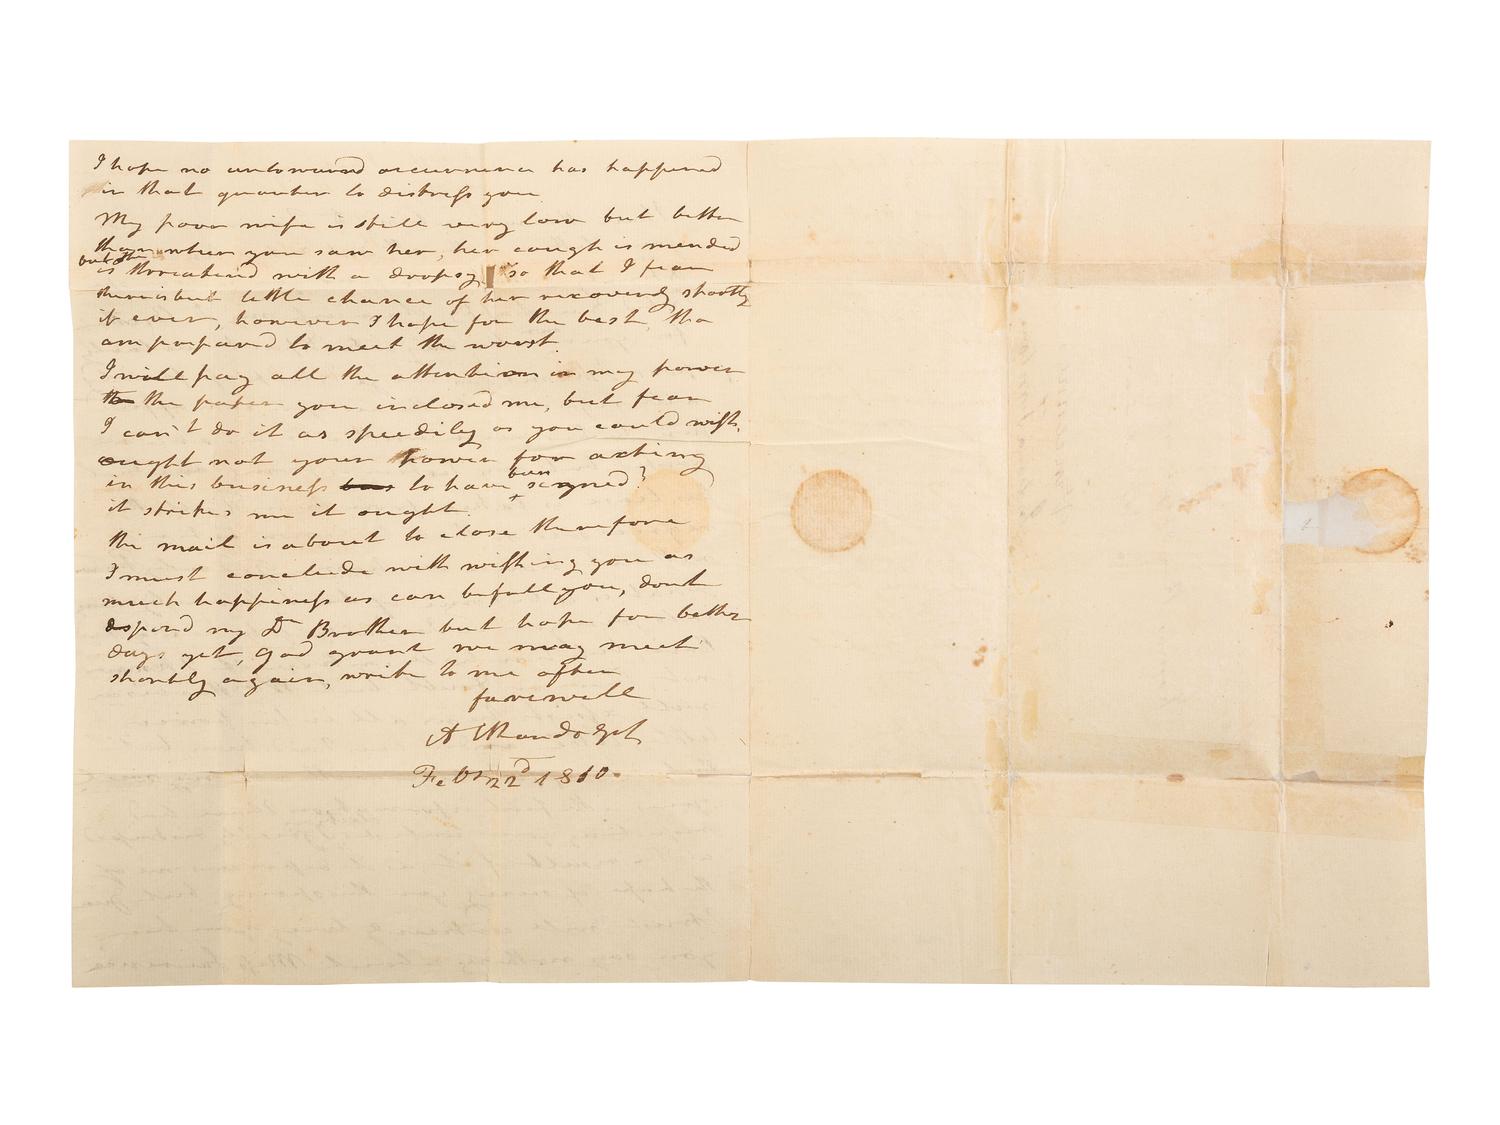 I hope no untoward occurrence has happened
in that quarter to distress you
My poor wife is still very low but better
than when you saw her, her cough is mended
but she
is threatend with a dropsy so that I fear
there is but little chance of her recovering shortly
if ever, however I hope for the best, tho
am prepared to meet the worst.
I will pay all the attention in my power
to the paper you inclosed me, but fear
I can't do it as speedily as you could wish,
ought not your power for acting
been
in this business to have signed?
it strikes me it ought.
the mail is about to close therefore
I must conclude with wishing you as
much happiness as can befall you, dont
despond my Dr Brother but hope for better
days yet, God grant we may meet
shortly again, write to me often
farewell
Randolph
Feby 22d 1810.